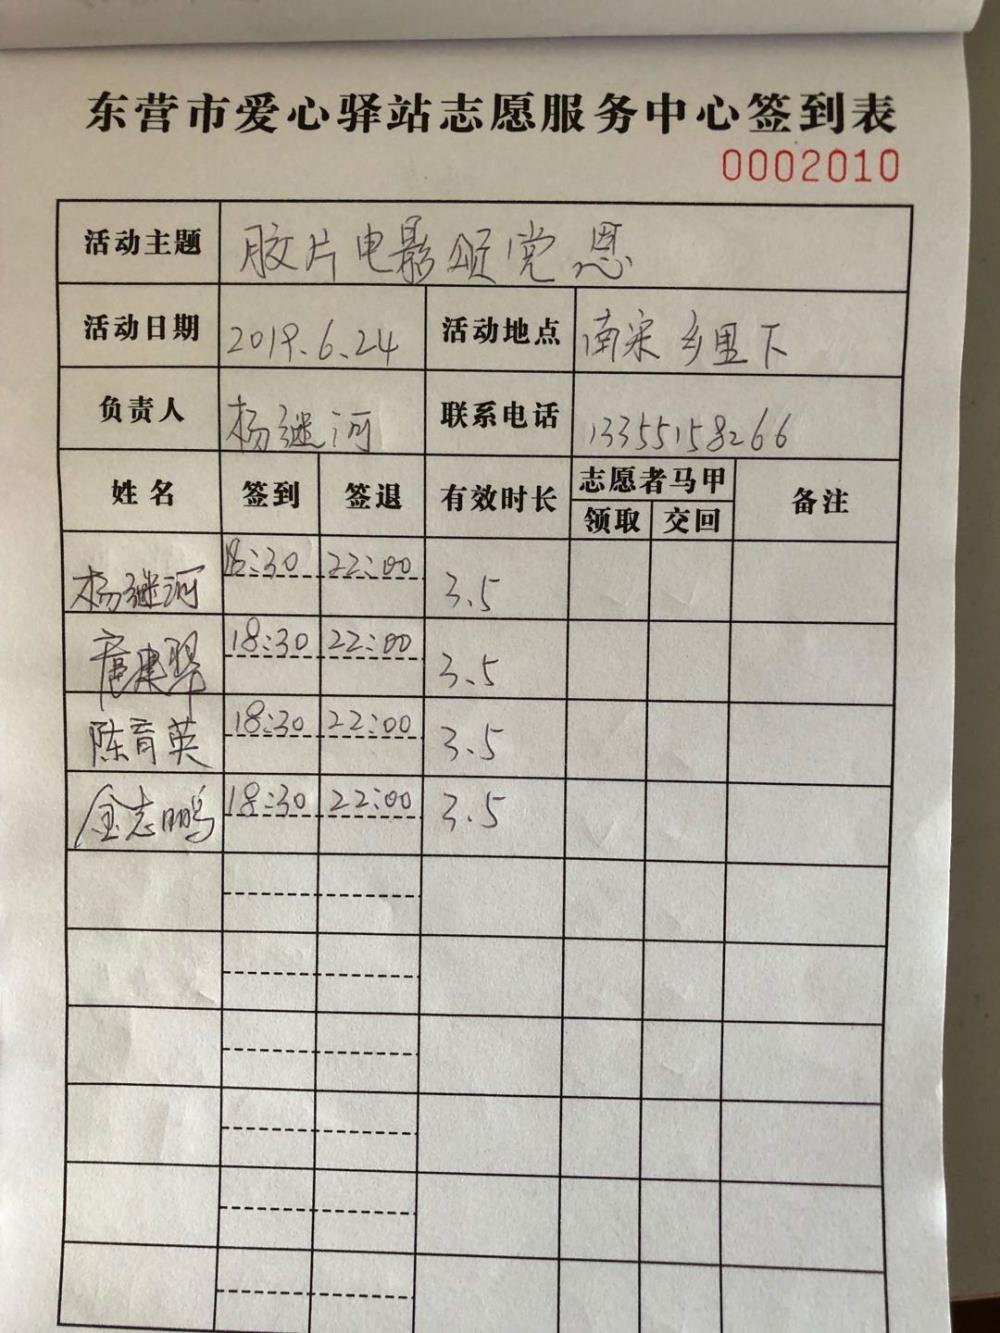 东营市爱心驿站志愿服务中心签到表
0002010
活动主题 胶片电影颂党恩
活动日期 2019.6.24 活动地点 南宋乡里下
负责人 杨继河 联系电话 13355158266
姓名 签到 签退 有效时长 志愿者马甲 备注
领取 交回
杨继河 18:30 22:00 3.5
18:30 22:00 3.5
陈育英 18:30 22:00 3.5
金志鹏 18:30 22:00 3.5